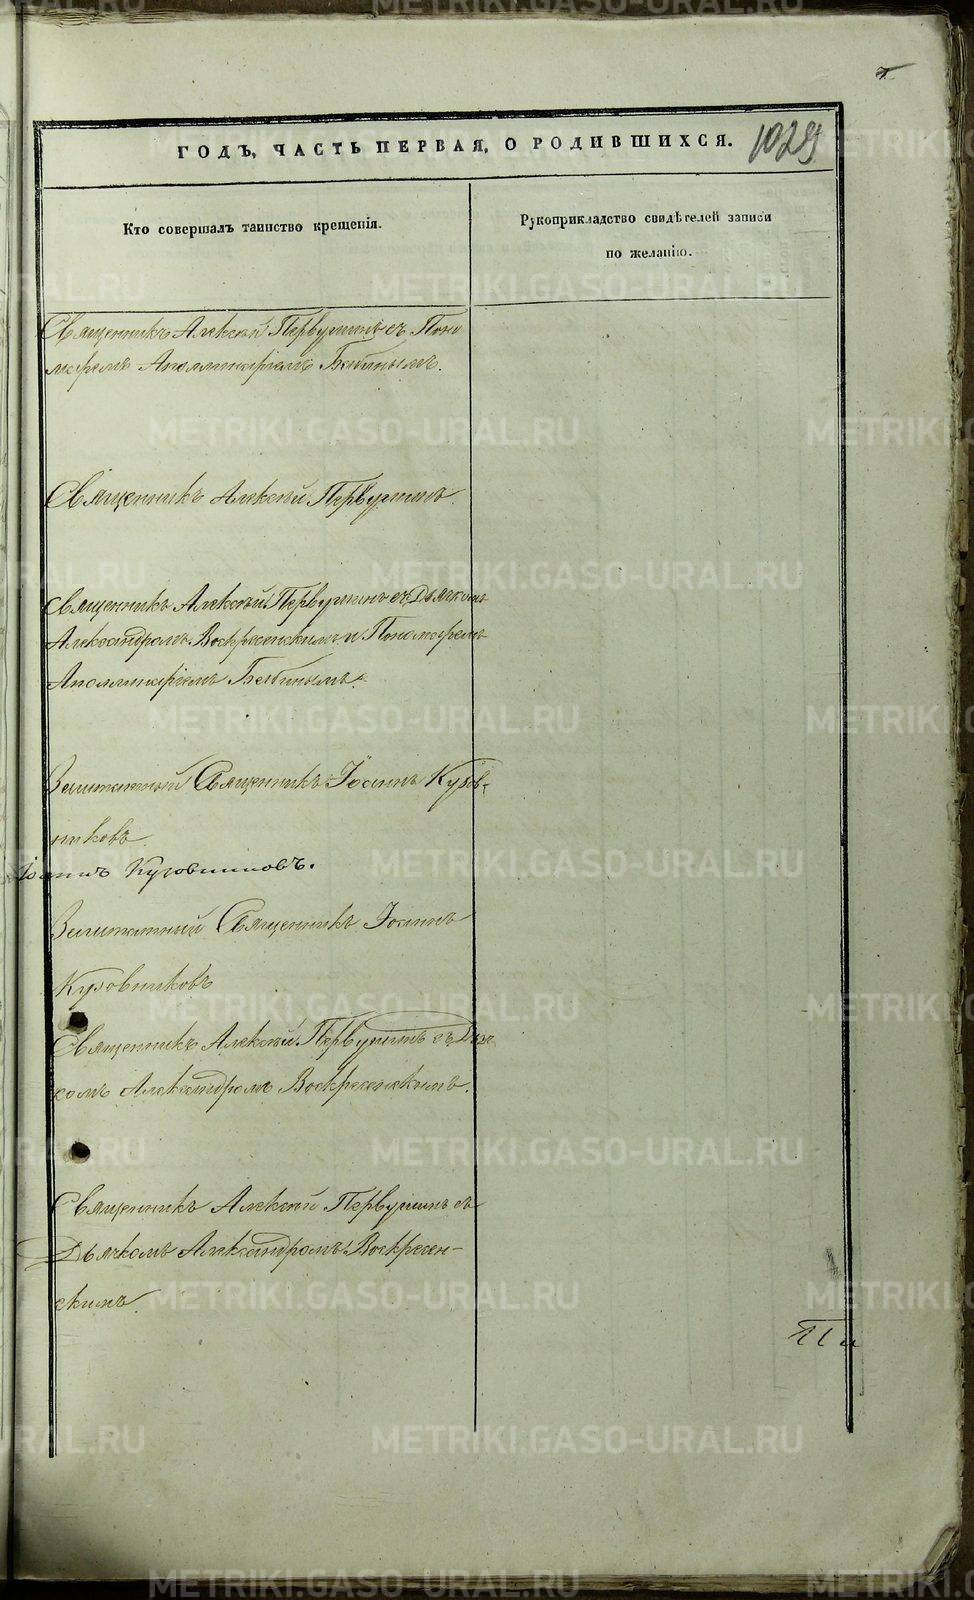 ГОДЪ, ЧАСТЬ ПЕРВАЯ, О РОДИВШИХСЯ. 1029
Кто совершалъ таинство крещенія.
Рукоприкладство свидѣтелей записи
по желанію.
Священникъ Алексѣй Первушинъ съ Поно
маремъ Аполлинаріемъ Бабинымъ.
Священникъ Алексѣй Первушинъ
Священникъ Алексѣй Первушинъ съ Дьячкомъ
Александромъ Воскресенскимъ и Пономаремъ
Аполлинаріемъ Бабинымъ.
Заштатный Священникъ Іоаннъ Куров-
никовъ
Іоаннъ Куровниковъ.
Заштатный Священникъ Іоаннъ
Куровниковъ
Священникъ Алексѣй Первушинъ съ Дьяч
комъ Александромъ Воскресенскимъ.
Священникъ Алексѣй Первушинъ съ
Дьячкомъ Александромъ Воскресен-
скимъ
METRIKI.GASO-URAL.RU